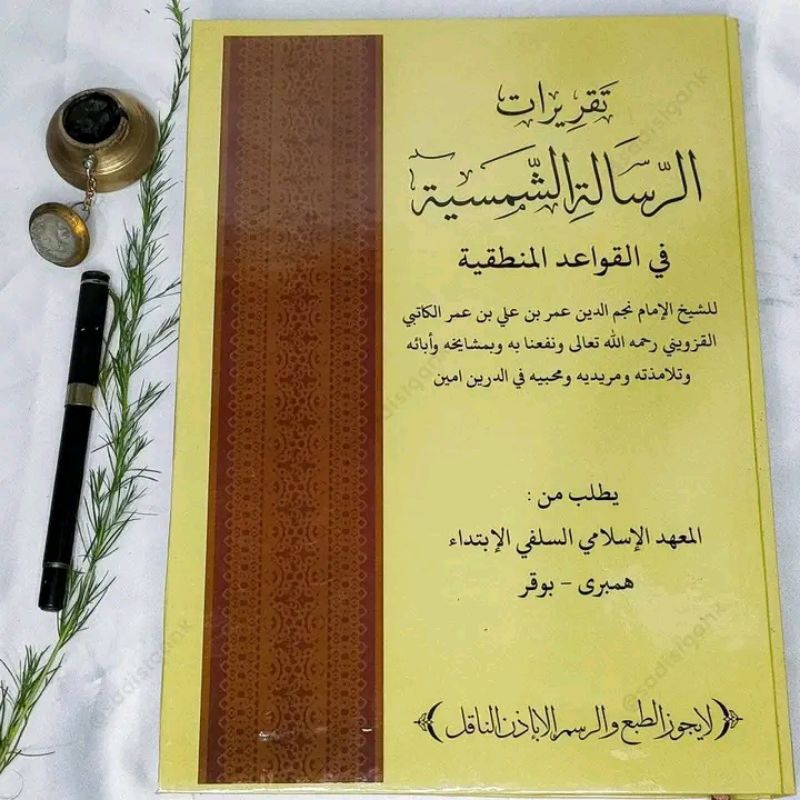 تقريرات
الرسالة الشمسية
في القواعد المنطقية
للشيخ الإمام نجم الدين عمر بن علي بن عمر الكاتبي
القزويني رحمه الله تعالى ونفعنا به وبمشايخه وأبائه
وتلامذته ومريديه ومحبيه في الدرين امين
يطلب من :
المعهد الإسلامي السلفي الإبتداء
همبرى - بوقر
﴿لايجوز الطبع والرسم الا باذن الناقل﴾
@sadisigank